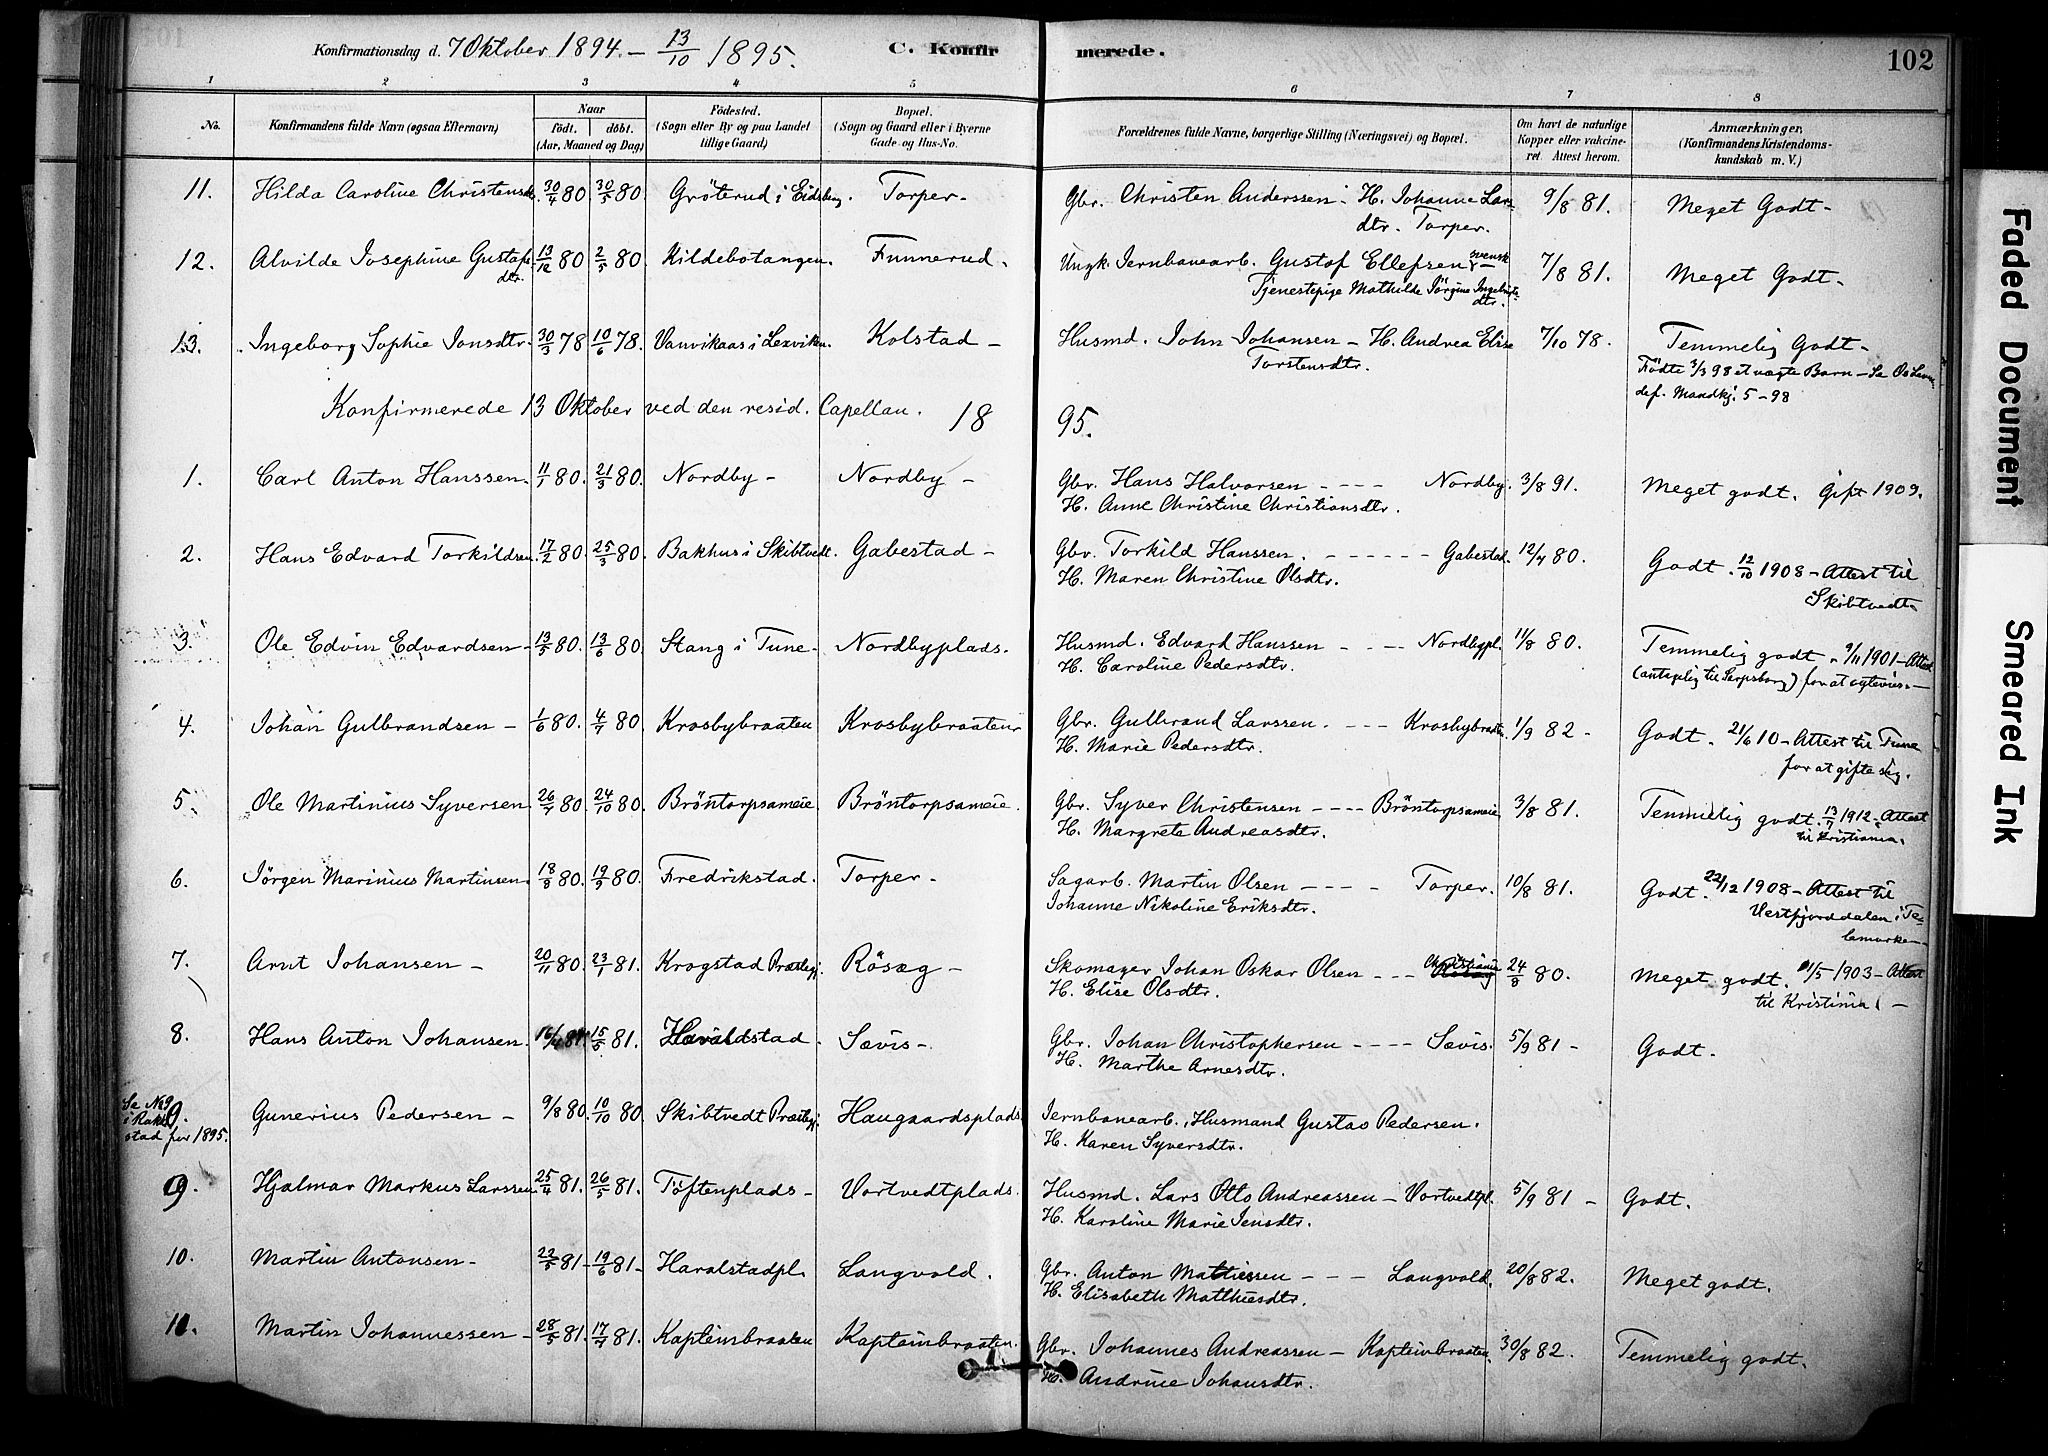 Konfirmationsdag d. 7 Oktober 1894. – 13/10 1895.
C. Konfirmerede.
102
1 2 3 4 5 6 7 8
No.
Konfirmandens fulde Navn (ogsaa Efternavn)
Naar
født. døbt.
(Aar, Maaned og Dag)
Fødested.
(Sogn eller By og paa Landet
tillige Gaard)
Bopæl.
(Sogn og Gaard eller i Byerne
Gade og Hus-No.
Forældrenes fulde Navne, borgerlige Stilling (Næringsvei) og Bopæl.
Om havt de naturlige
Kopper eller vakcine-
ret. Attest herom.
Anmærkninger,
(Konfirmandens Kristendoms-
kundskab m. V.)
11. Hilda Caroline Christensdtr. 30/4 80 30/5 80 Gröterud i Eidsberg. Torper – Gbr. Christen Anderssen – H. Johanne Lars- 9/8 81. Meget Godt –
dtr. Torper.
12. Alvilde Josephine Gustafs- 13/12 80 2/5 80 Kildebotangen. Funnerud. Ungk. Jernbanearb. Gustof Ellefsen svensk 7/8 81. Meget Godt –
dtr. Tjenestepige Mathilde Jörgine Ingebrigts-
dtr.
13. Ingeborg Sophie Jonsdtr. 30/3 78 10/6 78. Vanvikaas i Lexviken. Kolstad – Husmd. John Johansen – H. Andrea Elise 7/10 78. Temmelig Godt –
Torstensdtr. Födte 3/3 98 et uægte Barn – Se
def. Mandkj. 5 – 98
Konfirmerede 13 Oktober ved den resid. Capellan. 1895.
1. Carl Anton Hanssen. 11/1 80. 21/3 80. Nordby – Nordby – Gbr. Hans Halvorsen – – – Nordby. 3/8 91. Meget godt. Gift 1909.
H. Anne Christine Christiansdtr.
2. Hans Edvard Torkildsen 17/2 80. 25/3 80. Bakhus i Skibtvedt. Gabestad – Gbr. Torkild Hanssen. – – – Gabestad. 12/4 80. Godt. 12/10 1908 – Attest til
H. Maren Christine Olsdtr. Skibtvedt
3. Ole Edvin Edvardsen – 13/5 80. 13/6 80 Stang i Tune – Nordbyplads. Husmd. Edvard Hanssen – – – Nordbypl. 11/8 80. Temmelig godt. 9/11 1901 – Attest
H. Caroline Pedersdtr. (antagelig til Sarpsborg) for at
4. Johan Gulbrandsen – 1/6 80. 4/7 80 Krosbybraaten Krosbybraaten Gbr. Gulbrand Larssen. – – – Krosbybraaten 1/9 82 – Godt. 21/6 10 – Attest til Tune
H. Marie Pedersdtr. for at gifte sig.
5. Ole Martinius Syversen. 26/7 80. 24/10 80. Bröntorpsameie. Bröntorpsameie. Gbr. Syver Christensen – – – Bröntorpsameie 3/8 81. Temmelig godt. 13/7 1912 – Attest
H. Margrete Andreasdtr. til Kristiania.
6. Jörgen Marinius Martinsen. 18/8 80. 19/9 80. Fredrikstad. Torper – Sagarb. Martin Olsen – – – Torper. 10/8 81. Godt. 22/12 1908 – Attest til
Johanne Nikoline Eriksdtr. Vestfjorddalen i Te-
lemarken –
7. Arnt Johansen – 20/11 80. 23/1 81. Krogstad Præstegj. Rösæg – Skomager Johan Oskar Olsen – – Christiania 24/8 80. Meget godt. 1/5 1903 – Attest
H. Elise Olsdtr. til Kristiania –
8. Hans Anton Johansen. 16/4 81. 15/5 81. Haraldstad. Sævis – Gbr. Johan Christophersen – – – Sævis. 5/9 81 – Godt.
H. Marthe Arnesdtr.
Se No 9
i Rakkestad for 1895.
9. Gunerius Pedersen – 9/8 80. 10/10 80. Skibtvedt Præstegj. Haugaardsplads Jernbanearb., Husmand Gustav Pedersen.
H. Karen Syversdtr.
9. Hjalmar Markus Larssen 25/4 81. 26/5 81. Töftenplads – Vortvedtplads. Husmd. Lars Otto Andreassen – Vortvedtpl. 5/9 81 – Godt.
H. Karoline Marie Jensdtr.
10. Martin Antonsen – 22/5 81 – 19/6 81 – Haralstadpl. Langvold. Gbr. Anton Mathiessen – – – Langvold. 20/8 82. Meget godt.
H. Elisabeth Matthisdtr.
11. Martin Johannessen – 28/5 81. 17/7 81. Kapteinbraaten Kapteinbraaten. Gbr. Johannes Andreassen – Kapteinbraaten. 30/8 82. Temmelig godt.
H. Andrine Johansdtr.
Faded Document
Smeared Ink